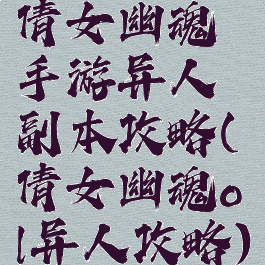 倩女幽魂
手游异人
副本攻略(
倩女幽魂。
|异人攻略)